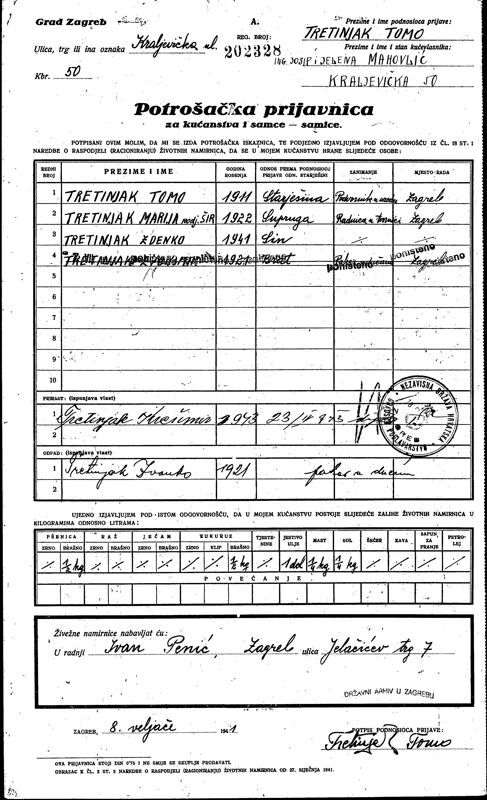 Grad Zagreb
A.
Prezime i ime podnosioca prijave:
TRETINJAK TOMO
Ulica, trg ili ina oznaka Kraljevička ul.
REG. BROJ:
202328
Prezime i ime i stan kućevlasnika:
ING. JOSIP I JELENA MAHOVLIĆ
Kbr. 50
KRALJEVIČKA 50
Potrošačka prijavnica
za kućanstva i samce — samice.
POTPISANI OVIM MOLIM, DA MI SE IZDA POTROŠAČKA ISKAZNICA, TE PODJEDNO IZJAVLJUJEM POD ODGOVORNOŠĆU IZ ČL. 18 ST. 1
NAREDBE O RASPODJELI (RACIONIRANJU) ŽIVOTNIH NAMIRNICA, DA SE U MOJEM KUĆANSTVU HRANE SLIJEDEĆE OSOBE:
REDNI BROJ PREZIME I IME GODINA ROĐENJA ODNOS PREMA PODNOSIOCU PRIJAVE ODN. STARJEŠINI ZANIMANJE MJESTO RADA
1 TRETINJAK TOMO 1911 Starješina Zagreb
2 TRETINJAK MARIJA rodj. ŠIR 1922 Supruga Zagreb
3 TRETINJAK ZDENKO 1941 Sin
4 TRETINJAK 1921 Brat poništeno poništeno Zagreb
5
6
7
8
9
10
PRIRAST: (ispunjava vlast)
1 Tretinjak Krešimir 1943
2
NEZAVISNA DRŽAVA HRVATSKA
POGLAVARSTVO
ODPAD: (ispunjava vlast)
1 Tretinjak Ivanko 1921 pekar u dućanu
2
UJEDNO IZJAVLJUJEM POD ISTOM ODGOVORNOŠĆU, DA U MOJEM KUĆANSTVU POSTOJE SLIJEDEĆE ZALIHE ŽIVOTNIH NAMIRNICA U
KILOGRAMIMA ODNOSNO LITRAMA:
PŠENICA RAŽ JEČAM KUKURUZ TJESTENINE JESTIVO ULJE MAST SOL ŠEĆER KAVA SAPUN ZA PRANJE PETROLEJ
ZRNO BRAŠNO ZRNO BRAŠNO ZRNO BRAŠNO ZRNO KLIP BRAŠNO
·/. ½ kg ·/. ·/. ·/. ·/. ·/. ·/. ½ kg ·/. 1 del ¼ kg ¼ kg ·/. ·/. ·/. ·/.
POVEĆANJE
Živežne namirnice nabavljat ću:
U radnji Ivan Penić, Zagreb ulica Jelačićev trg 7
DRŽAVNI ARHIV U ZAGREBU
ZAGREB, 8. veljače 1941
POTPIS PODNOSIOCA PRIJAVE:
Tretinjak Tomo
OVA PRIJAVNICA STOJI DIN 0'75 I NE SMIJE SE SKUPLJE PRODAVATI.
OBRAZAC K ČL. 2 ST. 2 NAREDBE O RASPODJELI (RACIONIRANJU) ŽIVOTNIH NAMIRNICA OD 27. SIJEČNJA 1941.